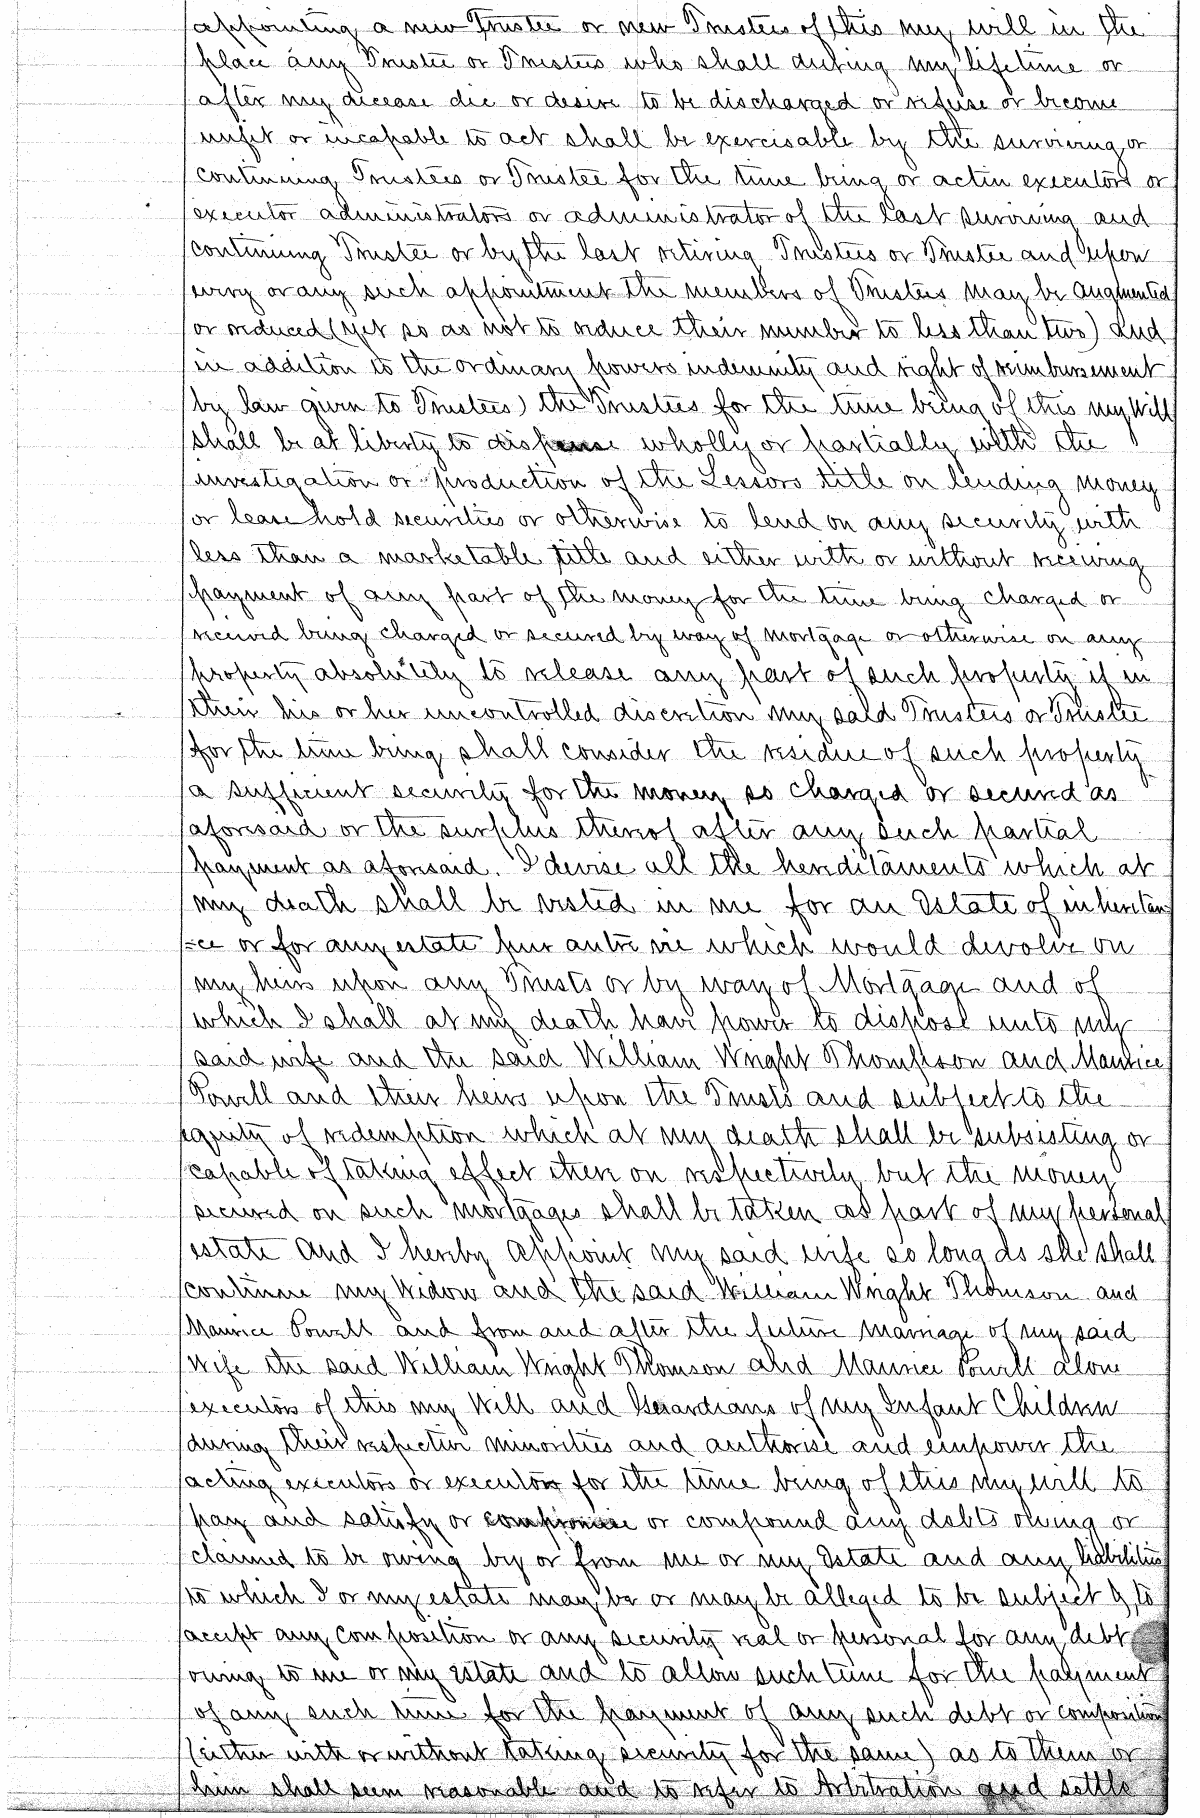 appointing a new Trustee or new Trustees of this my will in the
place any Trustee or Trustees who shall during my lifetime or
after my decease die or desire to be discharged or refuse or become
unfit or incapable to act shall be exercisable by the surviving or
continuing Trustees or Trustee for the time being or actin executors or
executor administrators or administrator of the last surviving and
continuing Trustee or by the last retiring Trustees or Trustee and upon
every or any such appointment the members of Trustees may be augmented
or reduced (yet so as not to reduce their number to less than two) and
in addition to the ordinary powers indemnity and right of reimbursement
by law given to Trustees) the Trustees for the time being of this my Will
shall be at liberty to dispense wholly or partially with the
investigation or production of the Lessors title on lending money
or lease hold securities or otherwise to lend on any security with
less than a marketable title and either with or without receiving
payment of any part of the money for the time being charged or
received being charged or secured by way of mortgage or otherwise on any
property absolutely to release any part of such property if in
their his or her uncontrolled discretion my said Trustees or Trustee
for the time being shall consider the residue of such property
a sufficient security for the money so charged or secured as
aforesaid or the surplus thereof after any such partial
payment as aforesaid. I devise all the hereditaments which at
my death shall be vested in me for an Estate of inheritan
-ce or for any estate pur autre vie which would devolve on
my heirs upon any Trusts or by way of Mortgage and of
which I shall at my death have power to dispose unto my
said wife and the said William Wright Thompson and Maurice
Powell and their heirs upon the Trusts and subject to the
equity of redemption which at my death shall be subsisting or
capable of taking effect there on respectively but the money
secured on such mortgages shall be taken as part of my personal
estate and I hereby appoint my said wife so long as she shall
continue my Widow and the said William Wright Thomson and
Maurice Powell and from and after the future marriage of my said
Wife the said William Wright Thomson and Maurice Powell alone
executors of this my Will and Guardians of my Infant Children
during their respective minorities and authorise and empower the
acting executors or executor for the time being of this my will to
pay and satisfy or compromise or compound any debts owing or
claimed to be owing by or from me or my Estate and any liabilities
to which I or my estate may be or may be alleged to be subject & to
accept any composition or any security real or personal for any debt
owing to me or my estate and to allow such time for the payment
of any such time for the payment of any such debt or composition
(either with or without taking security for the same) as to them or
him shall seem reasonable and to refer to Arbitration and settle